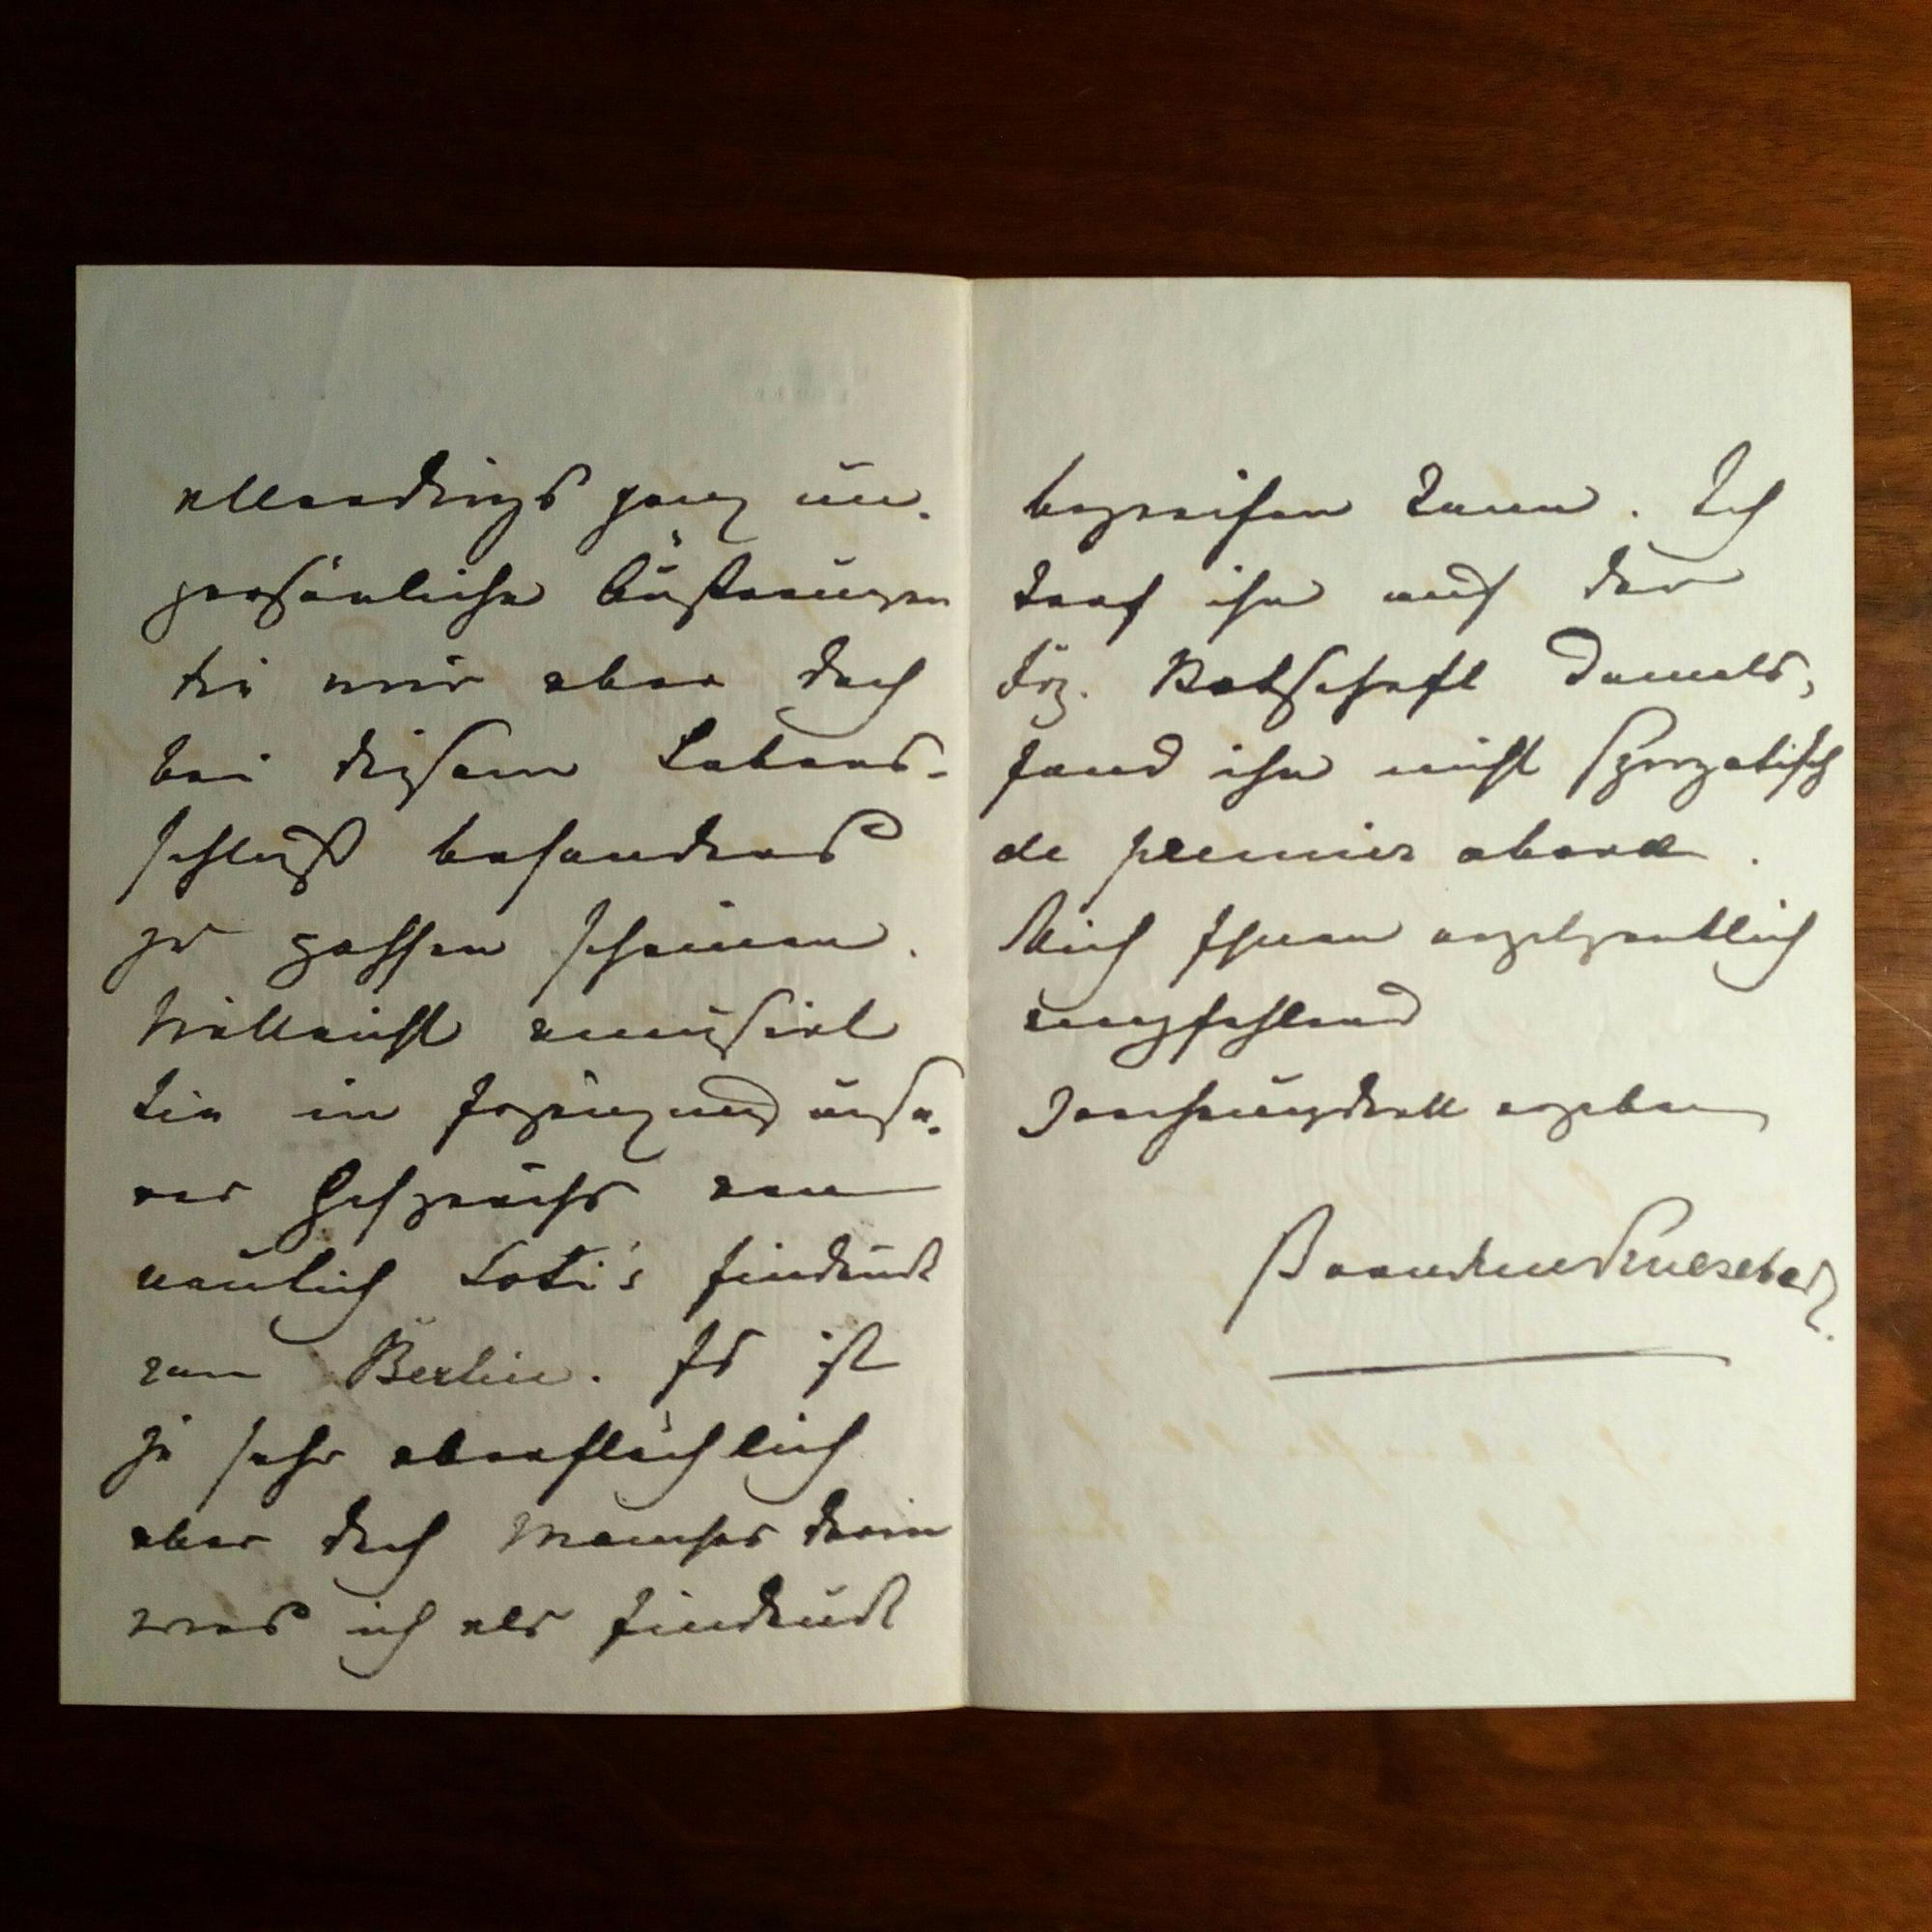 allerdings ganz un-
persönliche Äußerungen
die mir aber doch
bei diesem Lebens-
schluß besonders
zu passen scheinen.
Vielleicht amüsirt
Sie in Ergänzung unse-
res Gesprächs von
neulich Loti's Eindruck
von Berlin. Es ist
ja sehr oberflächlich
aber doch Manches darin
was ich als Eindruck
begreifen kann. Ich
traf ihn auf der
frz. Botschaft damals,
fand ihn nicht sympatisch
de premier abord.
Mich Ihnen angelegentlich
empfehlend
verehrungsvoll ergeben